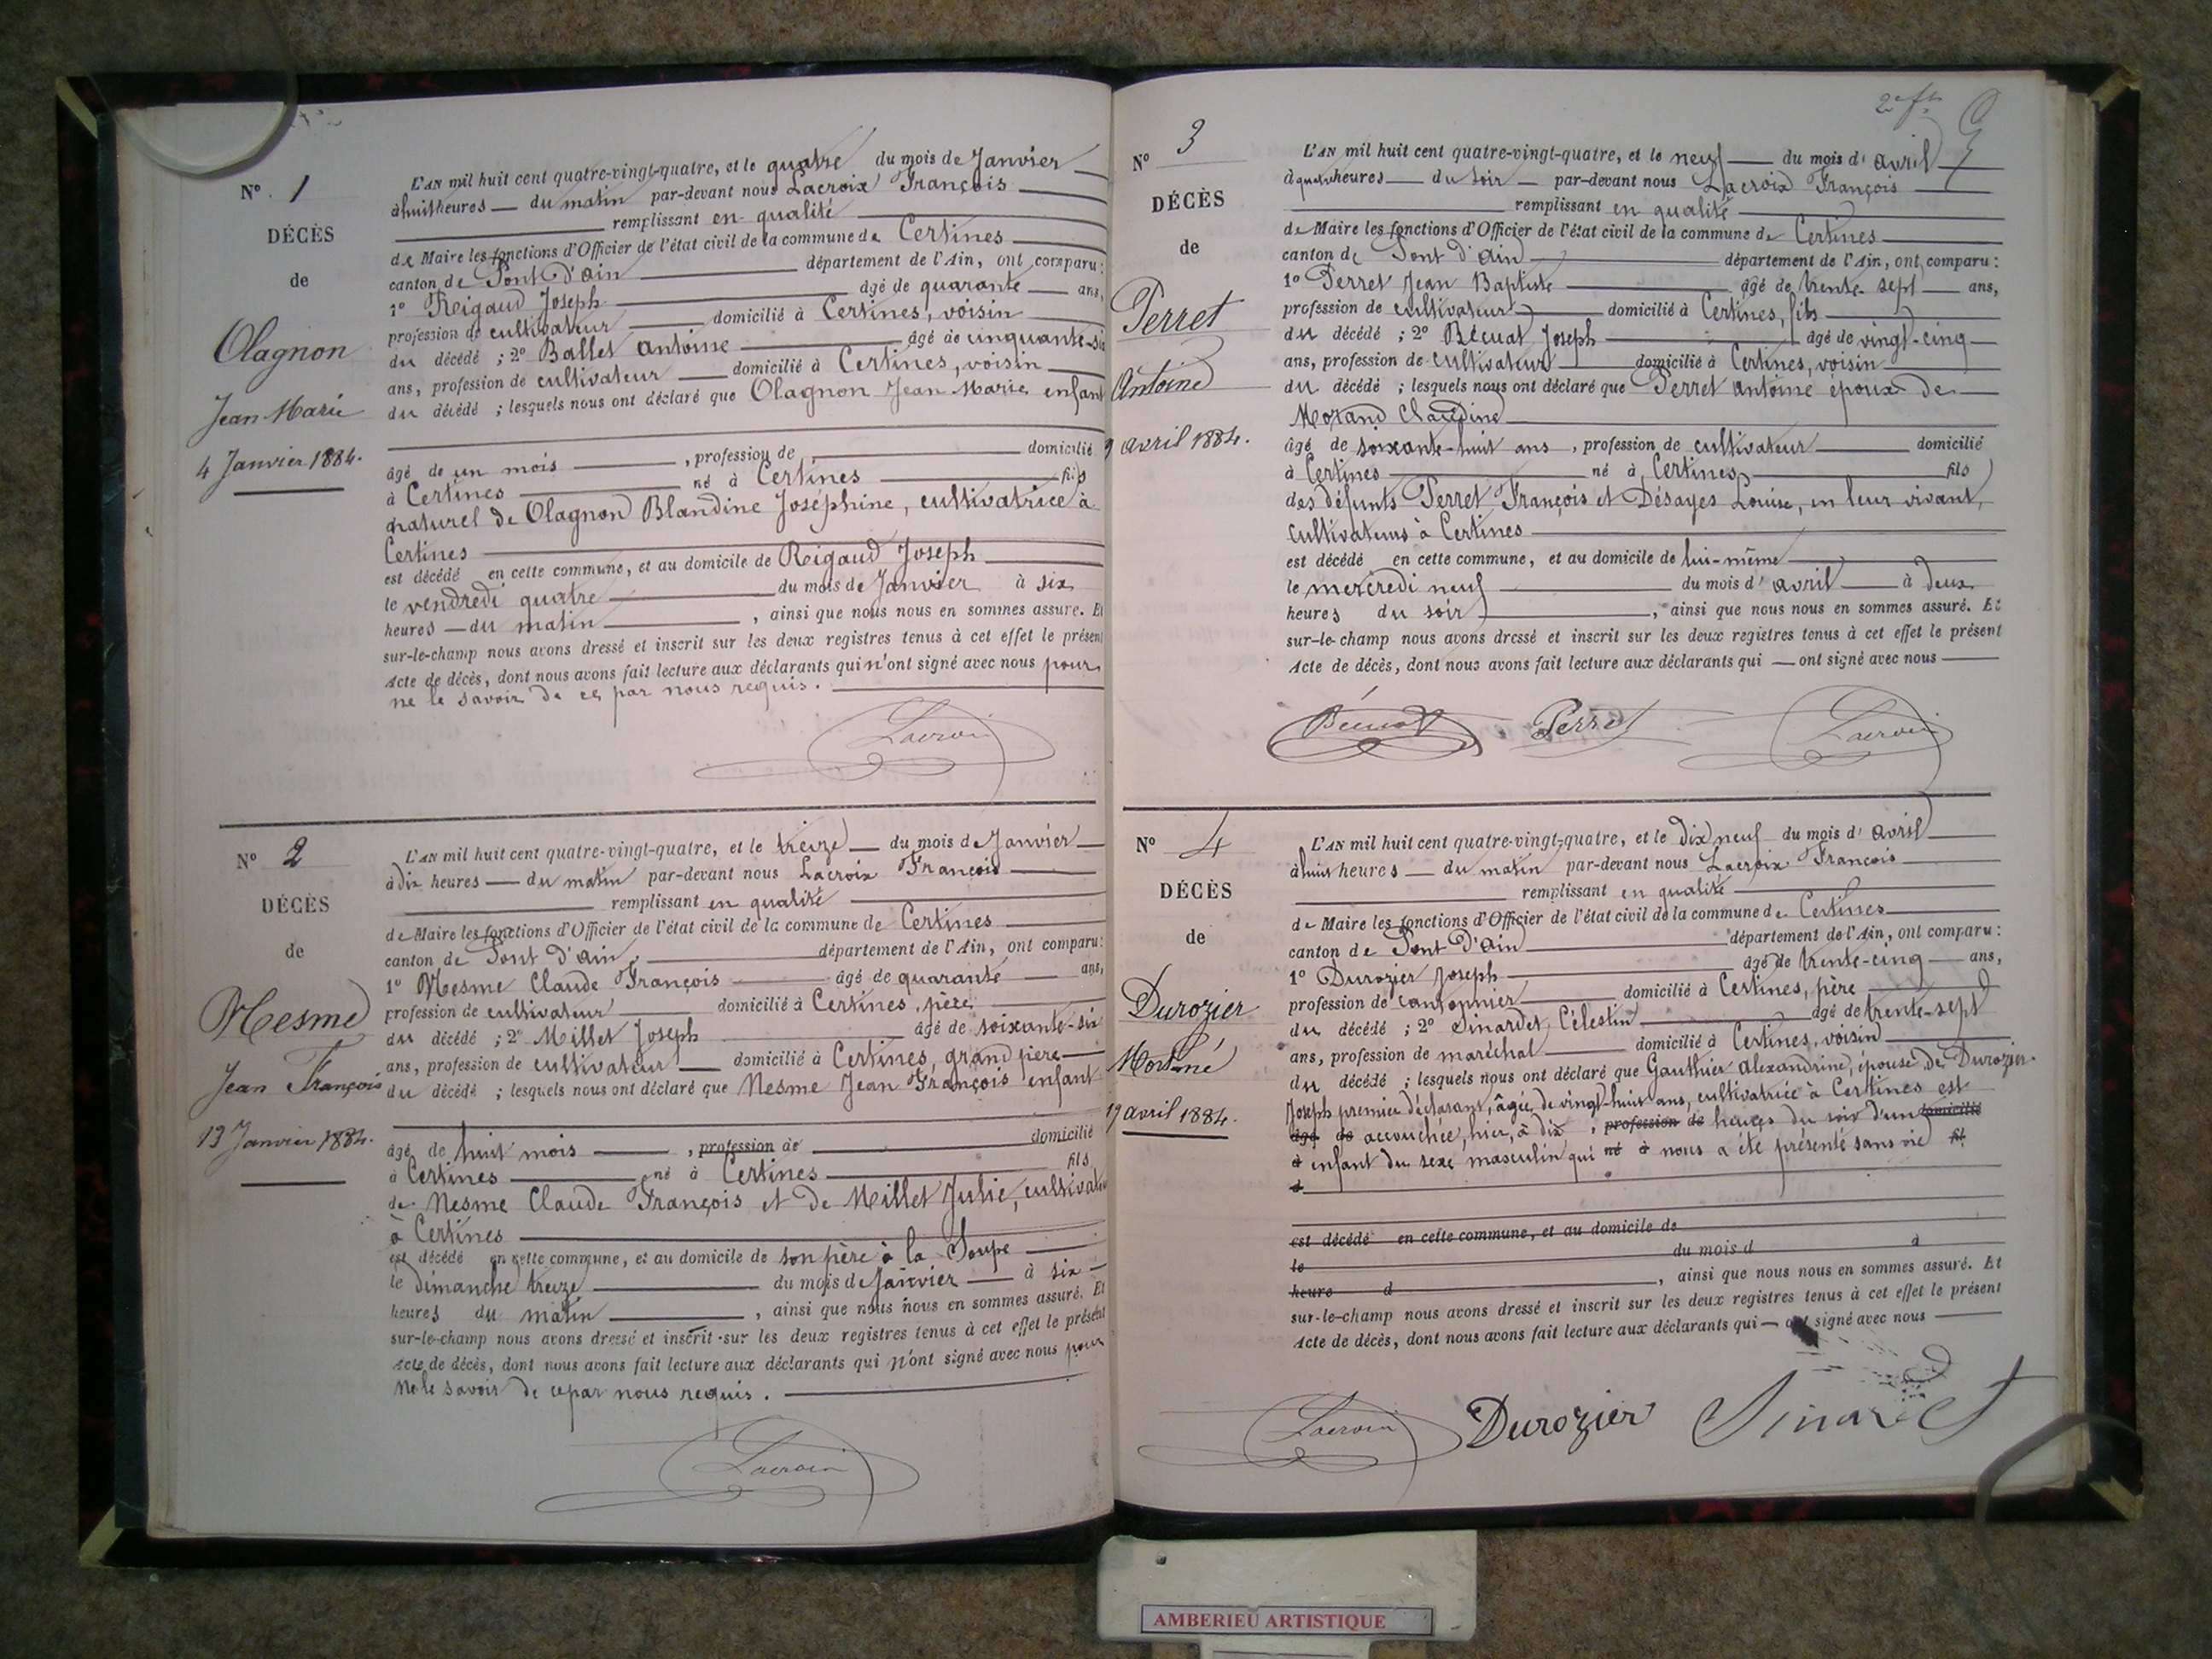 N° 1
DÉCÈS
de
Olagnon
Jean-Marie
4 Janvier 1884.
L'AN mil huit cent quatre-vingt-quatre, et le quatre du mois de Janvier
à huit heures du matin par-devant nous Lacroix François
remplissant en qualité
de Maire les fonctions d'Officier de l'état civil de la commune de Certines
canton de Pont d'ain département de l'Ain, ont comparu:
1° Reigaud Joseph âgé de quarante ans,
profession de cultivateur domicilié à Certines, voisin
du décédé ; 2° Ballet antoine âgé de cinquante-six
ans, profession de cultivateur domicilié à Certines, voisin
du décédé ; lesquels nous ont déclaré que Olagnon Jean-Marie enfant
âgé de un mois , profession de domicilié
à Certines né à Certines fils
naturel de Olagnon Blandine Joséphine, cultivatrice à
Certines
est décédé en cette commune, et au domicile de Reigaud Joseph
le vendredi quatre du mois de Janvier à six
heures du matin , ainsi que nous nous en sommes assuré. Et
sur-le-champ nous avons dressé et inscrit sur les deux registres tenus à cet effet le présent
Acte de décès, dont nous avons fait lecture aux déclarants qui n'ont signé avec nous pour
ne le savoir de ce par nous requis.
Lacroix
N° 2
DÉCÈS
de
Mesme
Jean François
13 Janvier 1884.
L'AN mil huit cent quatre-vingt-quatre, et le treize du mois de Janvier
à dix heures du matin par-devant nous Lacroix François
remplissant en qualité
de Maire les fonctions d'Officier de l'état civil de la commune de Certines
canton de Pont d'ain, département de l'Ain, ont comparu:
1° Mesme Claude François âgé de quarante ans,
profession de cultivateur domicilié à Certines, père
du décédé ; 2° Millet Joseph âgé de soixante-six
ans, profession de cultivateur domicilié à Certines, grand père
du décédé ; lesquels nous ont déclaré que Mesme Jean François enfant
âgé de huit mois , profession de domicilié
à Certines né à Certines fils
de Mesme Claude François et de Millet Julie,
à Certines
est décédé en cette commune, et au domicile de son père à la Soupe
le dimanche treize du mois de Janvier à six
heures du matin , ainsi que nous nous en sommes assuré. Et
sur-le-champ nous avons dressé et inscrit sur les deux registres tenus à cet effet le présent
Acte de décès, dont nous avons fait lecture aux déclarants qui n'ont signé avec nous pour
ne le savoir de ce par nous requis.
Lacroix
N° 3
DÉCÈS
de
Perret
Antoine
9 avril 1884.
L'AN mil huit cent quatre-vingt-quatre, et le neuf du mois d'avril
à quatre heures du soir par-devant nous Lacroix François
remplissant en qualité
de Maire les fonctions d'Officier de l'état civil de la commune de Certines
canton de Pont d'ain département de l'Ain, ont comparu:
1° Perret Jean Baptiste âgé de trente-sept ans,
profession de cultivateur domicilié à Certines, fils
du décédé ; 2° Bécuat Joseph âgé de vingt-cinq
ans, profession de cultivateur domicilié à Certines, voisin
du décédé ; lesquels nous ont déclaré que Perret antoine époux de
Morand Claudine
âgé de soixante-huit ans , profession de cultivateur domicilié
à Certines né à Certines fils
des défunts Perret François et Désayes Louise, en leur vivant,
cultivateurs à Certines
est décédé en cette commune, et au domicile de lui-même
le mercredi neuf du mois d'avril à deux
heures du soir , ainsi que nous nous en sommes assuré. Et
sur-le-champ nous avons dressé et inscrit sur les deux registres tenus à cet effet le présent
Acte de décès, dont nous avons fait lecture aux déclarants qui ont signé avec nous
Bécuat Perret Lacroix
N° 4
DÉCÈS
de
Durozier
Mort-né
19 avril 1884.
L'AN mil huit cent quatre-vingt-quatre, et le dix neuf du mois d'avril
à huit heures du matin par-devant nous Lacroix François
remplissant en qualité
de Maire les fonctions d'Officier de l'état civil de la commune de Certines
canton de Pont d'ain département de l'Ain, ont comparu:
1° Durozier Joseph âgé de trente-cinq ans,
profession de cantonnier domicilié à Certines, père
du décédé ; 2° Sinardet Célestin âgé de trente-sept
ans, profession de maréchal domicilié à Certines, voisin
du décédé ; lesquels nous ont déclaré que Gauthier Alexandrine, épouse de Durozier
Joseph premier déclarant, âgée de vingt-huit ans, cultivatrice à Certines est
âgé de accouchée, hier, à dix , profession de heures du soir d'un domicilié
à enfant du sexe masculin qui né à nous a été présenté sans vie fil
d
est décédé en cette commune, et au domicile de
le du mois d à
heure d , ainsi que nous nous en sommes assuré. Et
sur-le-champ nous avons dressé et inscrit sur les deux registres tenus à cet effet le présent
Acte de décès, dont nous avons fait lecture aux déclarants qui ont signé avec nous
Lacroix Durozier Sinardet
AMBERIEU ARTISTIQUE